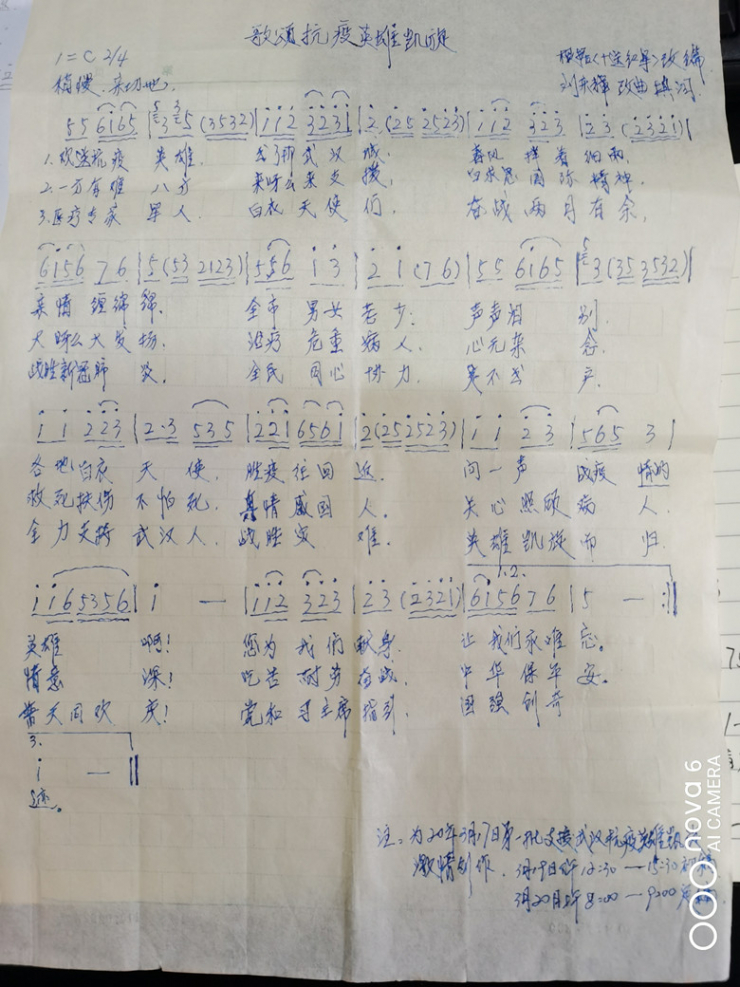 歌颂抗疫英雄凯旋
1=C 2/4
根据《十送红军》改编
稍慢、亲切地
改曲填词
5 5 6165 | 35 (3532) | 112 3231 | 2 (25 2523) | 112 323 | 23 (2321) |
1.欢送抗疫 英雄. 武汉 城. 细雨,
2.一方有难 八方 来呀么来支援, 白求恩国际精神
3.医疗专家 军人. 白衣天使们. 奋战两月有余,
6156 76 | 5 (53 2123) | 556 1 3 | 2 1 (76) | 55 6165 | 3 (35 3532) |
亲情绵绵. 全市男女老少. 声声泪别.
大呀么大发扬. 治疗危重病人. 心元杂念.
战胜新冠肺炎. 全民同心协力.
1 1 223 | 2·3 535 | 221 6561 | 2 (25 2523) | 1 1 2 3 | 565 3 |
各地白衣天使. 胜疫往回返. 问一声战疫情的
救死扶伤不怕死. 真情感国人. 关心照顾病人.
全力支持武汉人. 战胜灾难. 英雄凯旋而归.
1.2.
116 5356 | 1 — | 112 323 | 23 (2321) | 6156 76 | 5 — :||
英雄啊! 您为我们献身. 让我们永难忘。
情意深! 吃苦耐劳奋战. 中华保平安。
普天同欢庆! 党和习主席指引. 国强创奇
3.
1 — ||
迹。
注:为20年3月17日第一批支援武汉抗疫英雄凯
激情创作. 3月19日 12:30—15:30初稿
3月20日 8:00—9:00
nova 6
AI CAMERA